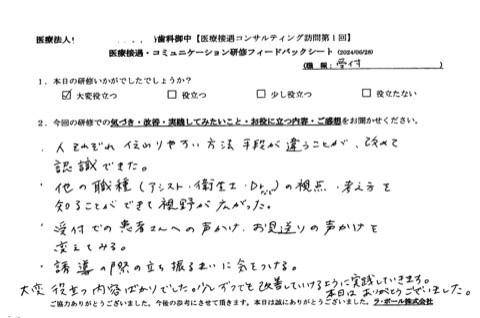 医療法人 歯科御中【医療接遇コンサルティング訪問第1回】
医療接遇・コミュニケーション研修フィードバックシート（2024/06/28）
（職種：受付）
1．本日の研修いかがでしたでしょうか？
☑ 大変役立つ □ 役立つ □ 少し役立つ □ 役立たない
2．今回の研修での気づき・改善・実践してみたいこと・お役に立つ内容・ご感想をお聞かせください。
・人それぞれ伝わりやすい方法手段が違うことが、改めて
認識できた。
・他の職種（アシスト・衛生士・Drなど）の視点・考え方を
知ることができて視野が広がった。
・受付での患者さんへの声かけ、お見送りの声かけを
変えてみる。
・誘導の際の立ち振るまいに気をつける。
大変役立つ内容ばかりでした。少しずつでも改善していけるように実践していきます。
本日はありがとうございました。
ご協力ありがとうございました。今後の参考にさせて頂きます。本日は誠にありがとうございました。ラ・ポール株式会社